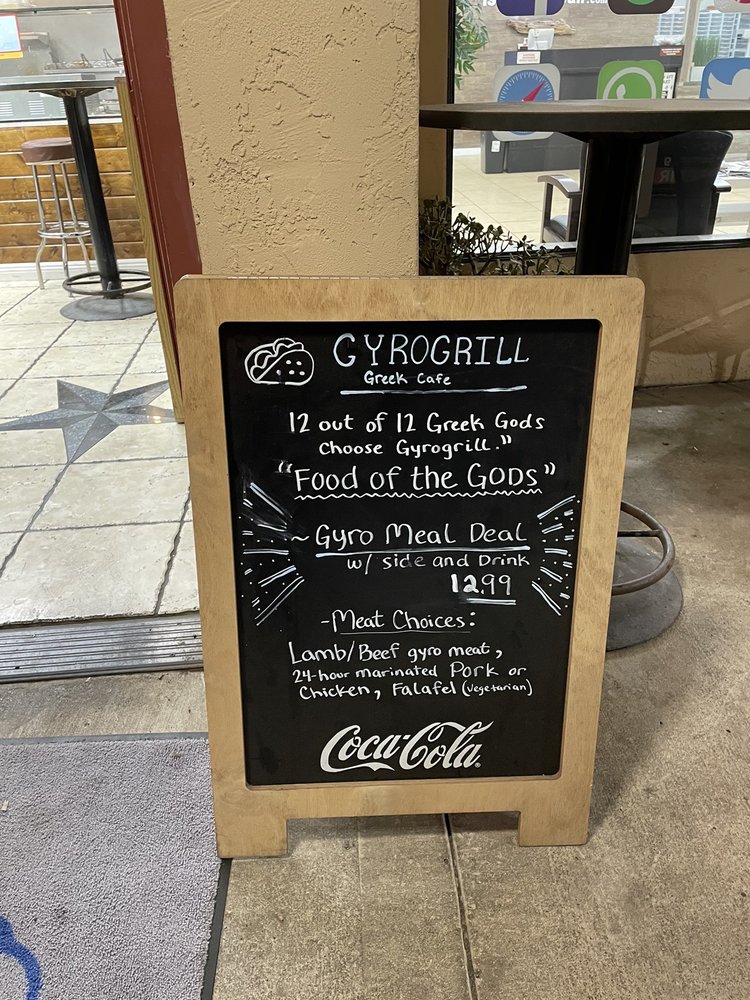 GYROGRILL
Greek Cafe
12 out of 12 Greek Gods
choose Gyrogrill."
"Food of the GODS"
~ Gyro Meal Deal
w/ side and Drink
12.99
-Meat Choices:
Lamb/Beef gyro meat,
24-hour marinated Pork or
Chicken, Falafel (vegetarian)
Coca-Cola